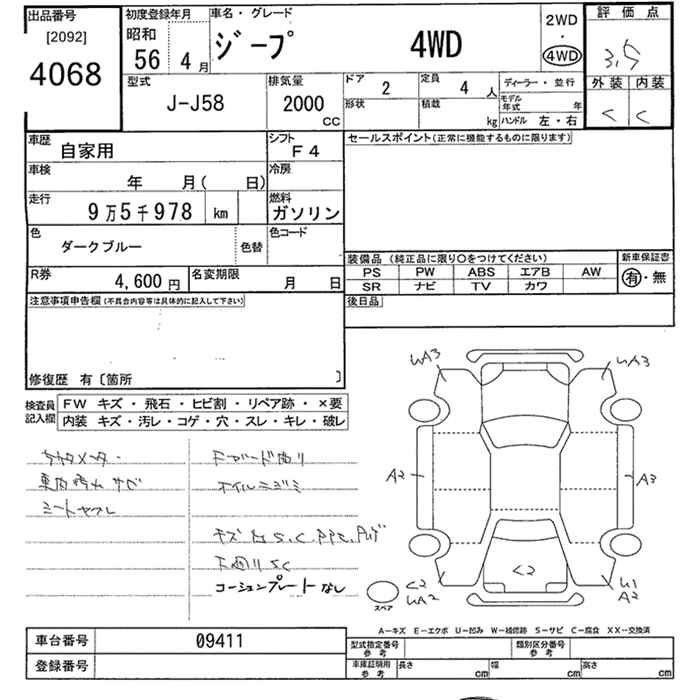 出品番号
[2092]
4068
初度登録年月
昭和
56 4月
車名・グレード
ジープ 4WD
2WD
・
4WD
評価点
3.5
外装 内装
C C
型式
J-J58
排気量
2000
CC
ドア
2
形状
定員
4 人
積載
kg
ディーラー・並行
モデル年式 年
ハンドル 左・右
車歴
自家用
シフト
F4
車検
年 月( 日)
冷房
走行
9万5千978 km
燃料
ガソリン
色
ダークブルー
色替
色コード
R券
4,600円
名変期限
月 日
セールスポイント(正常に機能するものに限ります)
装備品(純正品に限り○をつけてください)
PS PW ABS エアB AW
SR ナビ TV カワ
新車保証書
有・無
後日品
注意事項申告欄(不具合内容等は具体的に記入して下さい)
修復歴 有〔箇所 〕
検査員記入欄
FW キズ・飛石・ヒビ割・リペア跡・×要
内装 キズ・汚レ・コゲ・穴・スレ・キレ・破レ
車内汚れ サビ
シートヤブレ
下廻りSC
コーションプレートなし
UA3
UA3
A2
A3
C2
C2
UA2
U1
A2
スペア
A-キズ E-エクボ U-凹み W-補修跡 S-サビ C-腐食 XX-交換済
車台番号 09411
登録番号
型式指定番号 参考
類別区分番号 参考
車庫証明用 参考
長さ cm
幅 cm
高さ cm